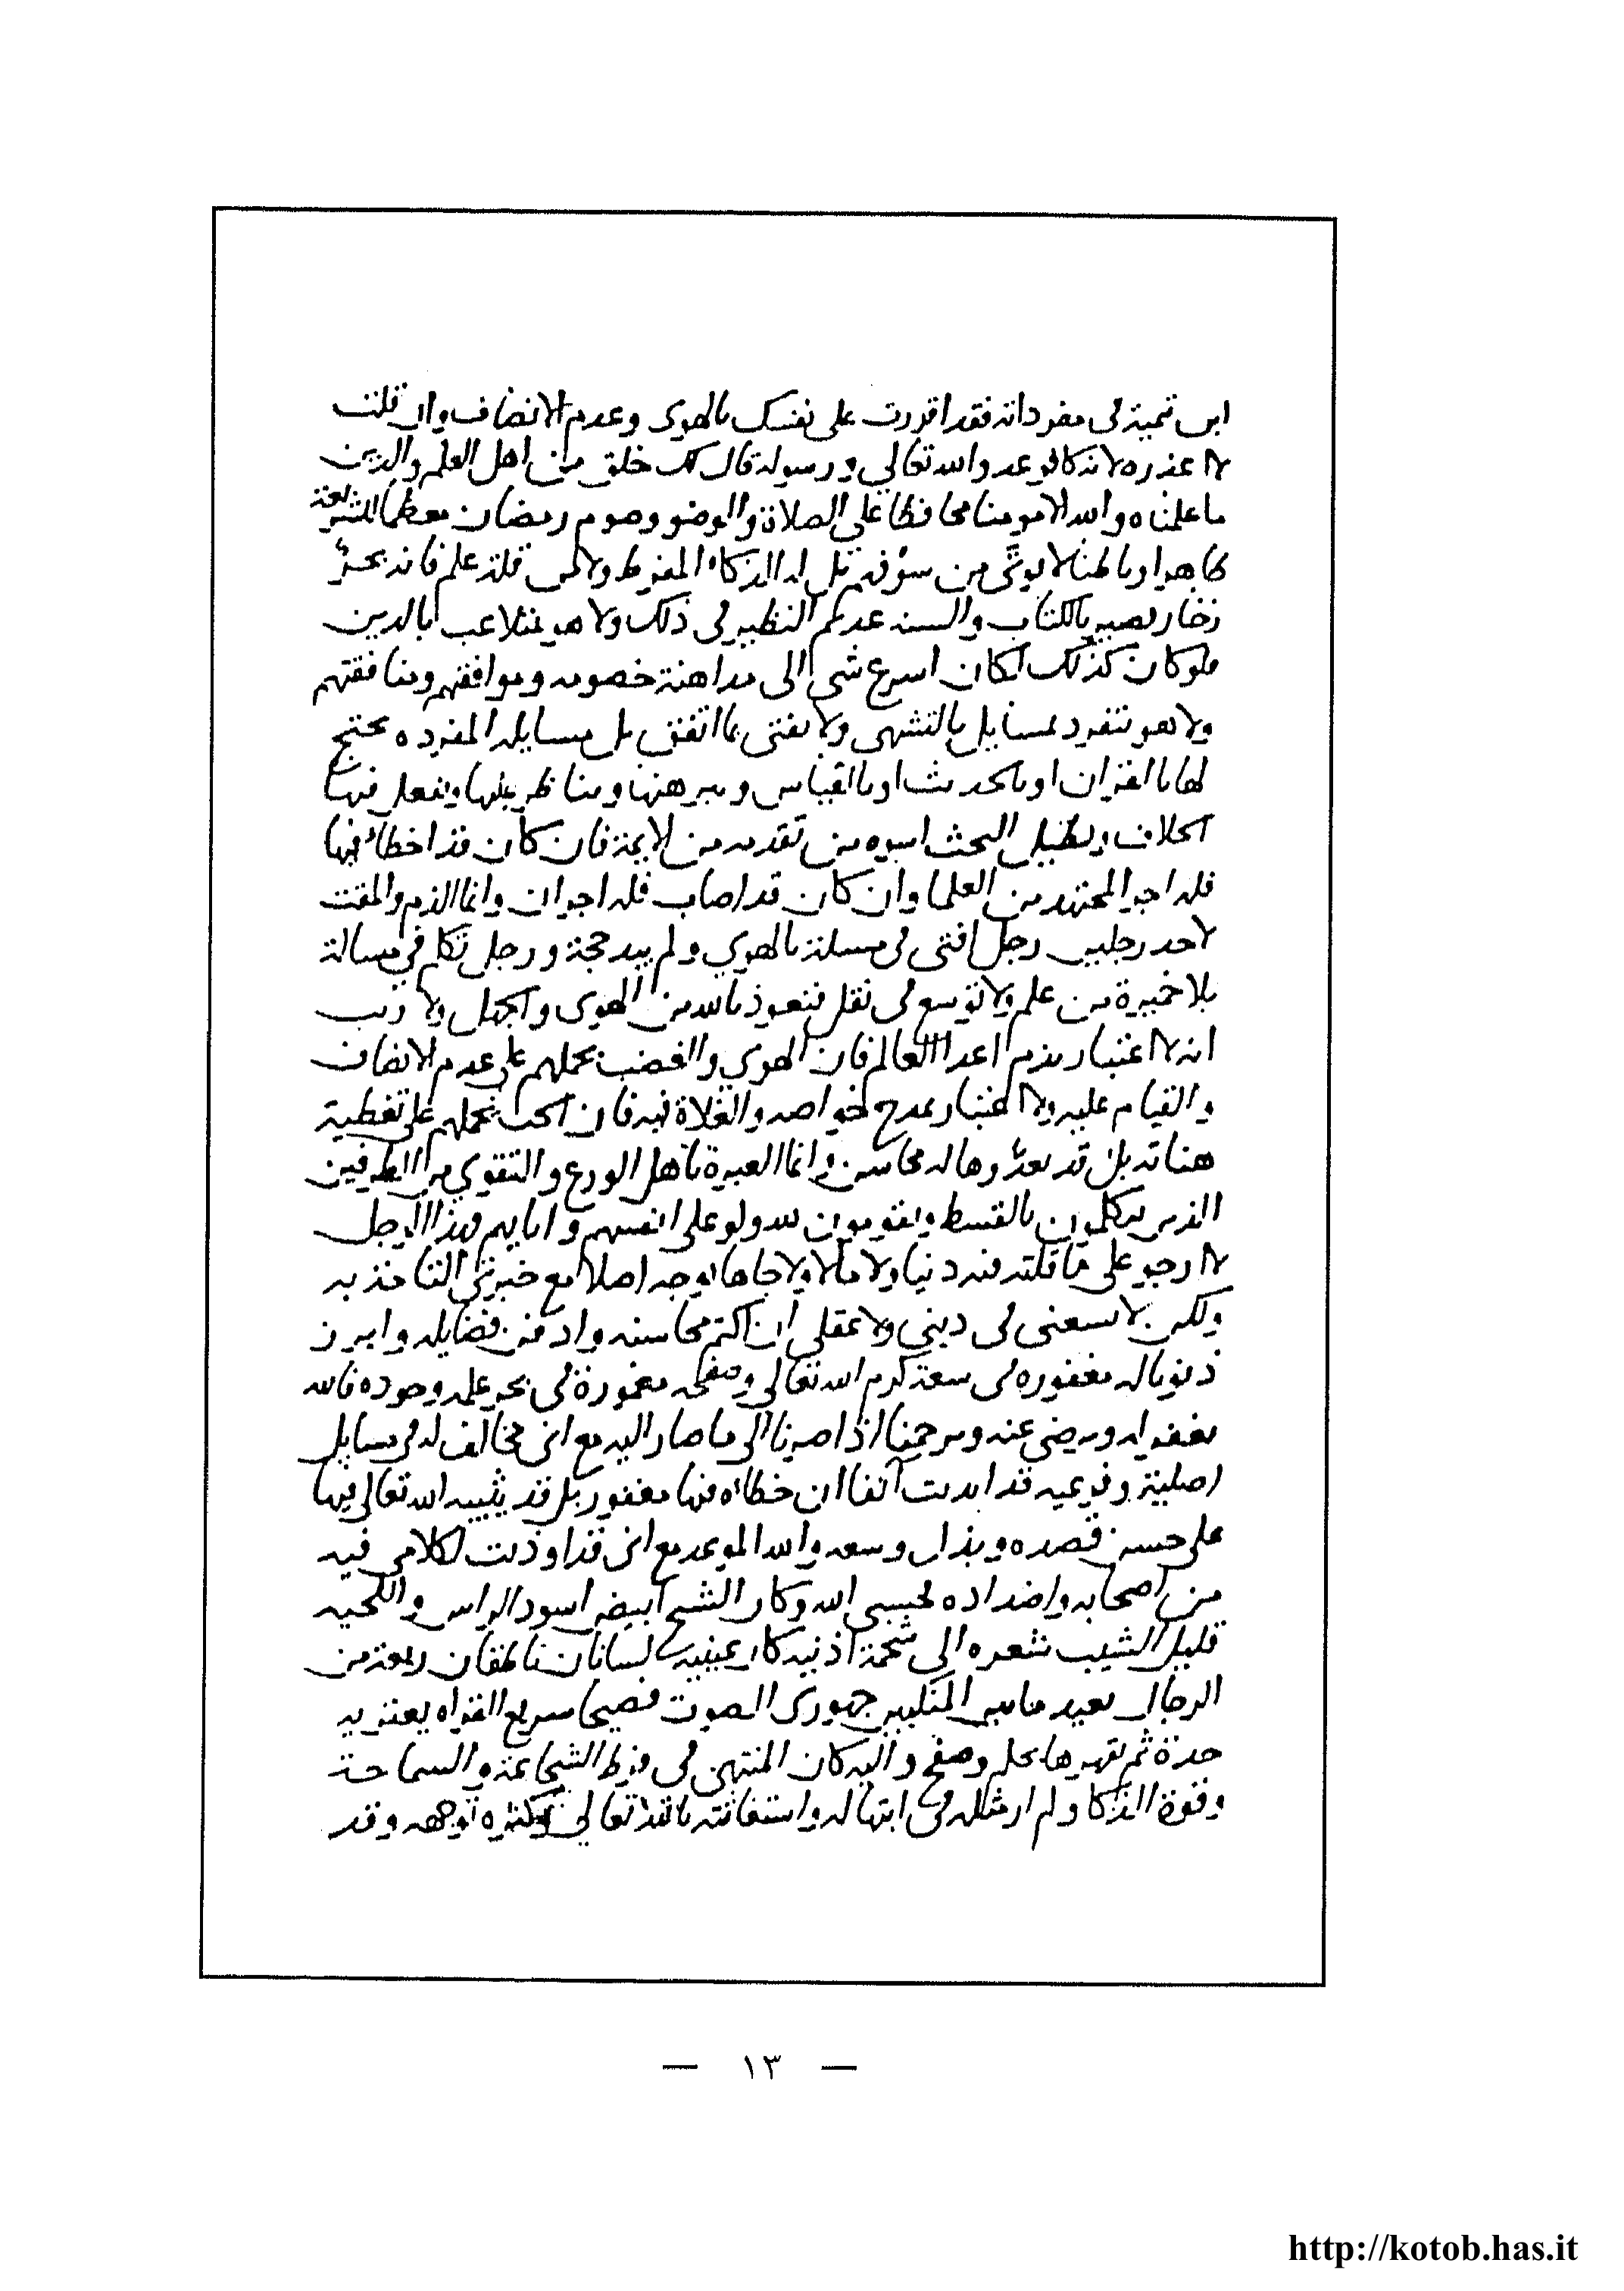 ابن تيمية في مفرداته فقد اقررت على نفسك بالهوى وعدم الانصاف وان قلت
لا اعذره لانه كافر عدو الله تعالى ورسوله قال لك خلق من اهل العلم والدين
ما علمناه والله الا مومنا محافظا على الصلاة والوضو وصوم رمضان معظما للشريعة
ظاهرا وباطنا لا يوتى من سوء فهم بل له الذكاء المفرط ولا من قلة علم فانه بحر
زخار بصير بالكتاب والسنه عديم النظير في ذلك ولا هو بمتلاعب بالدين
فلو كان كذلك لكان اسرع شي الى مداهنة خصومه وموافقتهم ومنافقتهم
ولا هو يتفرد بمسايل بالتشهى ولا يفتى بما اتفق بل مسايله المفرده يحتج
لها بالقران او بالحديث او بالقياس ويبرهنها ويناظر عليها وينقل فيها
الخلاف ويطيل البحث اسوه من تقدمه من الايمة فان كان قد اخطا فيها
فله اجر المجتهد من العلما وان كان قد اصاب فله اجران وانما الذم والمقت
لاحد رجلين رجل افتى في مسلة بالهوي ولم يبد حجة ورجل تكلم في مسالة
بلا خميرة من علم ولا توسع في نقل فنعوذ بالله من الهوى والجهل ولا ريب
انه لا اعتبار بذم اعدا العالم فان الهوى والغضب يحملهم على عدم الانصاف
والقيام عليه ولا اعتبار بمدح خواصه والغلاة فيه فان الحب يحملهم على تغطية
هناته بل قد يعدوها له محاسن وانما العبرة باهل الورع والتقوي من الطرفين
الذين يتكلمون بالقسط ويقومون لله ولو على انفسهم واباييهم فهذا الرجل
لا ارجو على ما قلته فيه دنيا ولا مالا ولا جاها بوجه اصلا مع خبرتي التامة به
ولكن لا يسعنى في ديني ولا عقلي ان اكتم محاسنه وادفن فضايله وابرز
ذنوبا له مغفوره في سعة كرم الله تعالى وصفحه مغمورة في بحر علمه وجوده فالله
يغفر له ويرضى عنه ويرحمنا اذا صرنا الى ما صار اليه مع انى مخالف له في مسايل
اصلية وفرعيه قد ابديت آنفا ان خطاه فيها مغفور بل قد يثيبه الله تعالى فيها
على حسن قصده وبذل وسعه والله الموعد مع انى قد اوذيت لكلامي فيه
من اصحابه واضداده فحسبي الله وكان الشيخ ابيض اسود الراس واللحيه
قليل الشيب شعره الى شحمة اذنيه كان عينيه لسانان ناطقان ربعة من
الرجال بعيد ما بين المنكبين جهورى الصوت فصيحا سريع القراه يعتريه
حدة ثم يقهرها بحلم وصفح واليه كان المنتهى في فرط الشجاعة والسماحة
وقوة الذكا ولم ار مثله في ابتهاله واستغاثته بالله تعالى وكثره توجهه وقد
— ١٣ —
http://kotob.has.it